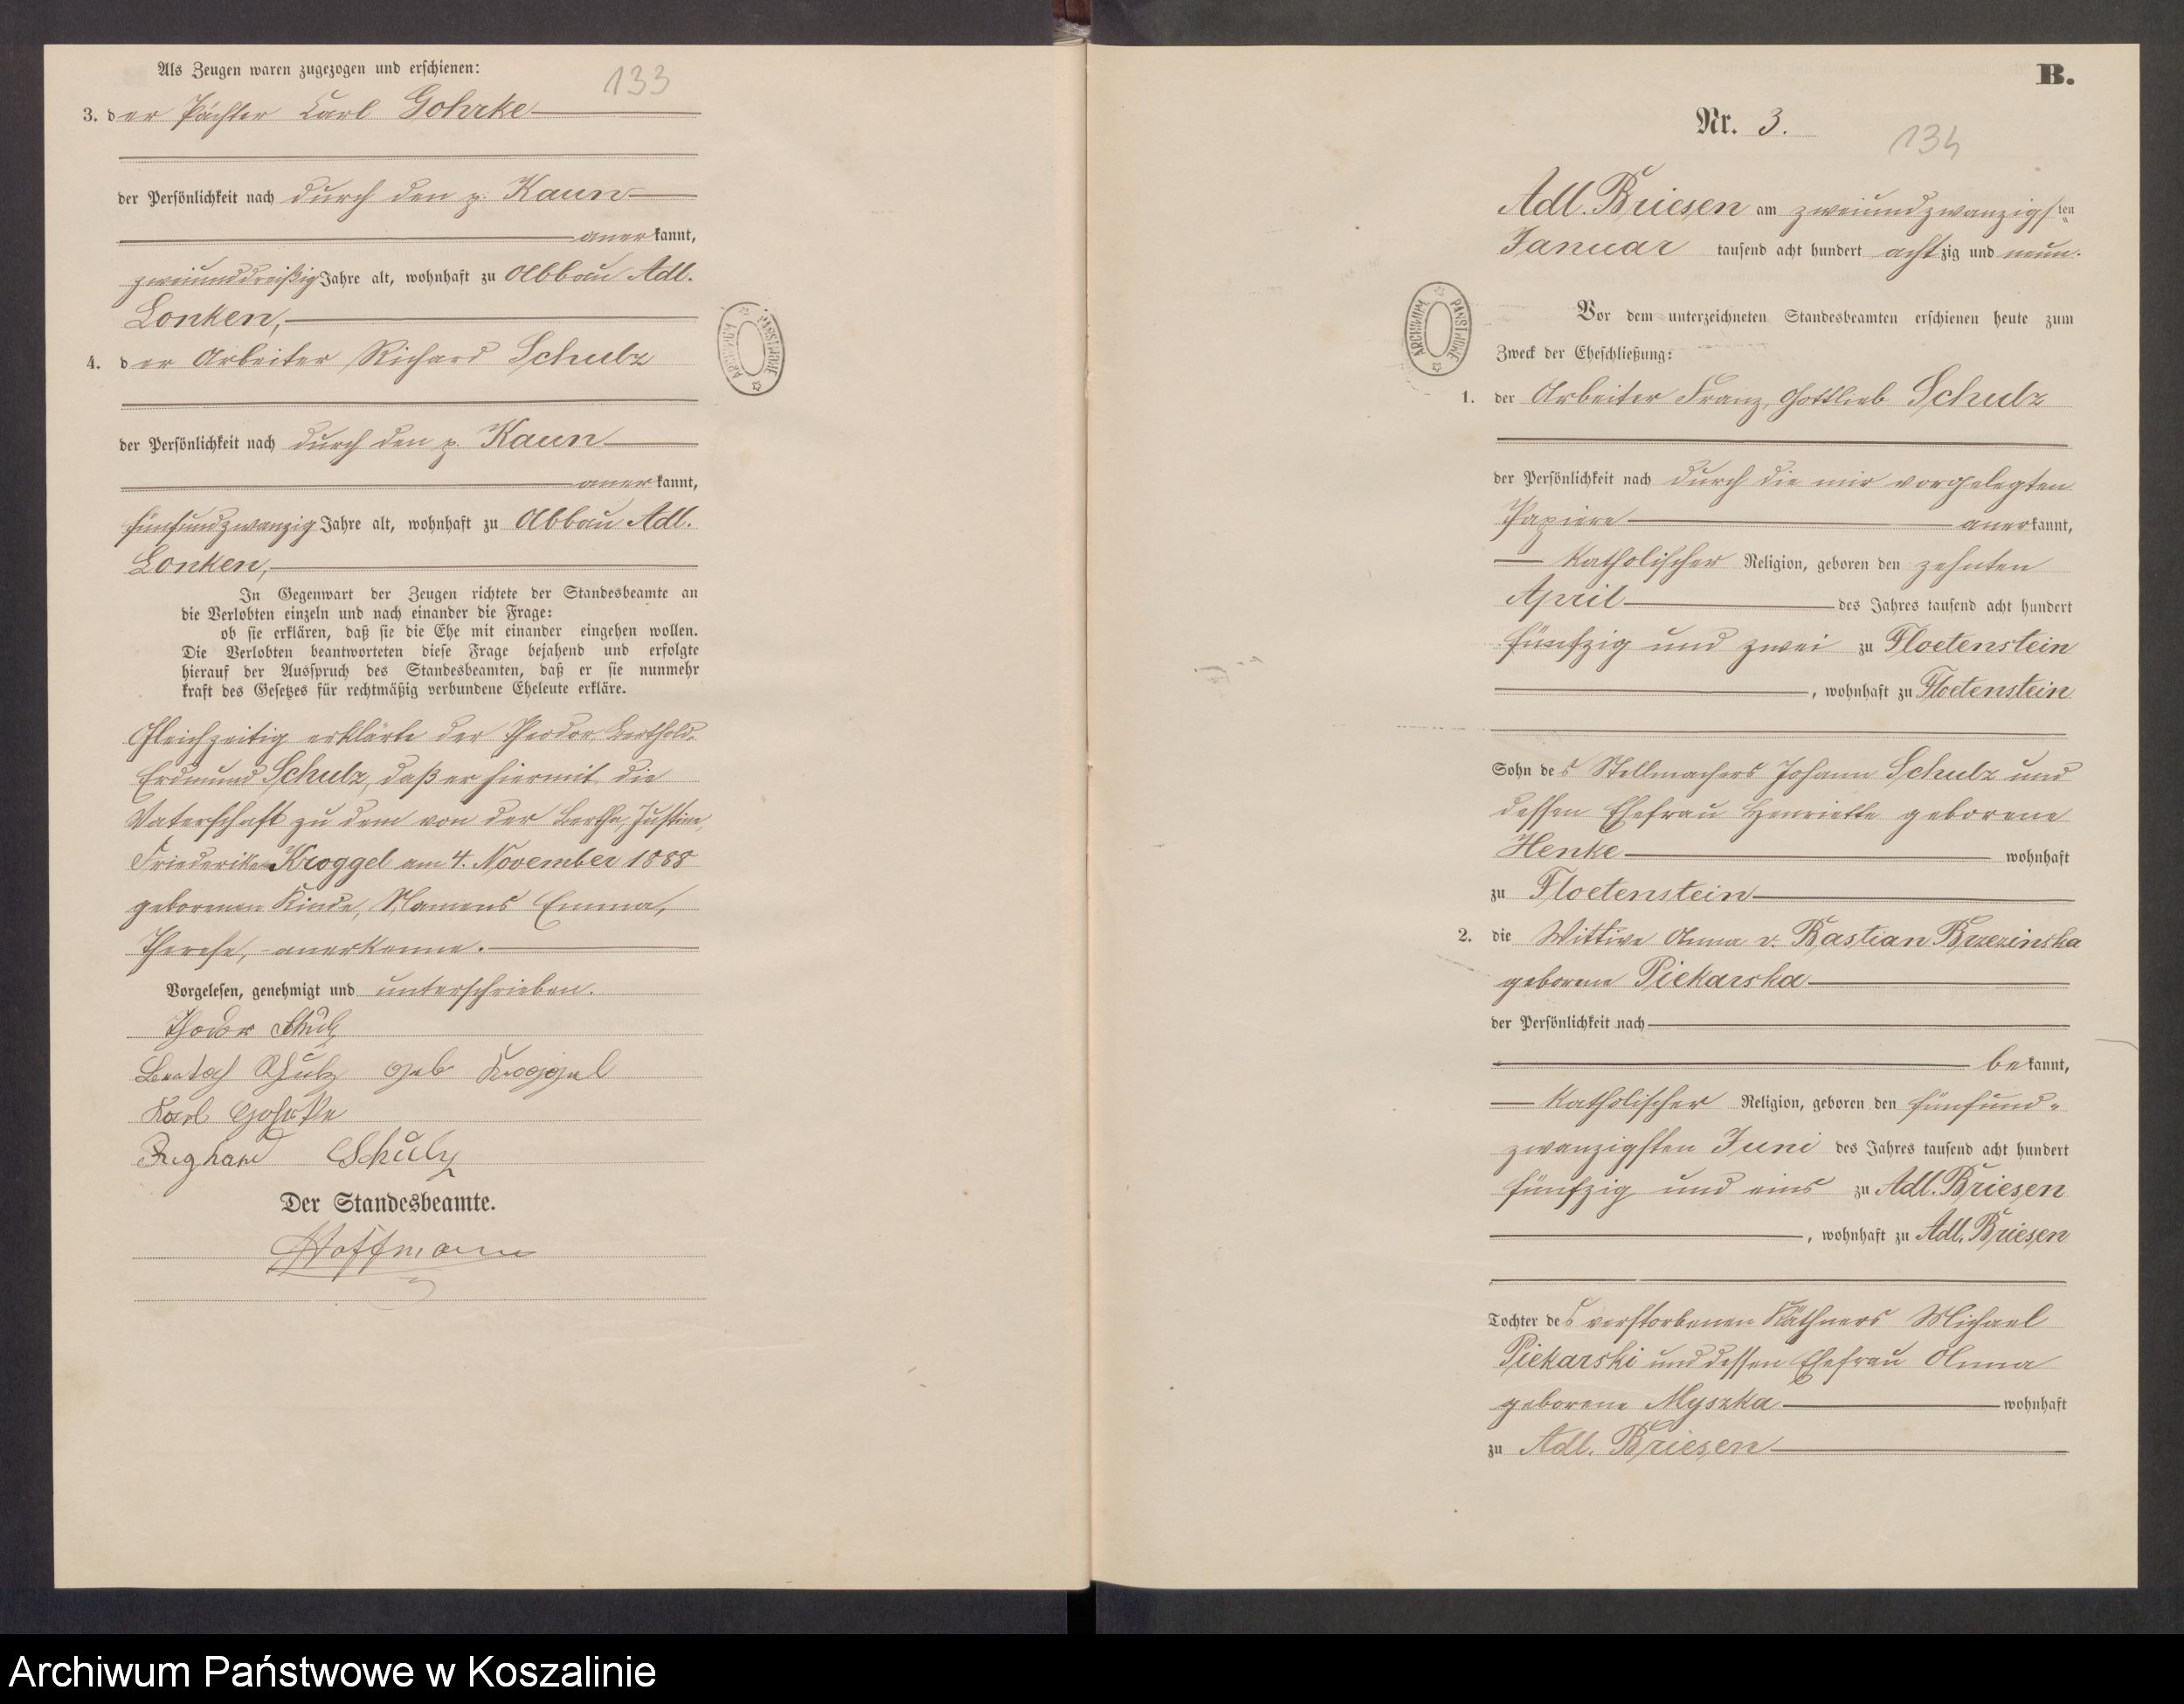 Als Zeugen waren zugezogen und erschienen:
133
3. der Pächter Carl Gohrke
der Persönlichkeit nach durch den p. Kaun
anerkannt,
zweiunddreißig Jahre alt, wohnhaft zu Abbau Adl.
Lonken,
4. der Arbeiter Richard Schulz
der Persönlichkeit nach durch den p. Kaun
anerkannt,
fünfundzwanzig Jahre alt, wohnhaft zu Abbau Adl.
Lonken,
In Gegenwart der Zeugen richtete der Standesbeamte an
die Verlobten einzeln und nach einander die Frage:
ob sie erklären, daß sie die Ehe mit einander eingehen wollen.
Die Verlobten beantworteten diese Frage bejahend und erfolgte
hierauf der Ausspruch des Standesbeamten, daß er sie nunmehr
kraft des Gesetzes für rechtmäßig verbundene Eheleute erkläre.
Gleichzeitig erklärte der Theodor, Berthold,
Erdmund Schulz, daß er hiermit die
Vaterschaft zu dem von der Bertha, Justine,
Friederike Kroggel am 4. November 1888
geborenen Kinde, Namens Emma,
Therese, anerkenne.
Vorgelesen, genehmigt und unterschrieben.
Theodor Schulz
Bertha Schulz geb Kroggel
Karl Gohrke
Righard Schulz
Der Standesbeamte.
Hoffmann
ARCHIWUM PAŃSTWOWE
B.
Nr. 3.
134
Adl. Briesen am zweiundzwanzigsten
Januar tausend acht hundert achtzig und neun.
Vor dem unterzeichneten Standesbeamten erschienen heute zum
Zweck der Eheschließung:
ARCHIWUM PAŃSTWOWE
1. der Arbeiter Franz, Gottlieb Schulz
der Persönlichkeit nach durch die mir vorgelegten
Papiere anerkannt,
katholischer Religion, geboren den zehnten
April des Jahres tausend acht hundert
fünfzig und zwei zu Floetenstein
, wohnhaft zu Floetenstein
Sohn des Stellmachers Johann Schulz und
dessen Ehefrau Henriette geborene
Henke wohnhaft
zu Floetenstein
2. die Wittwe Anna v. Bastian Brzezinska
geborene Piekarska
der Persönlichkeit nach
bekannt,
katholischer Religion, geboren den fünfund-
zwanzigsten Juni des Jahres tausend acht hundert
fünfzig und eins zu Adl. Briesen
, wohnhaft zu Adl. Briesen
Tochter des verstorbenen Käthners Michael
Piekarski und dessen Ehefrau Anna
geborene Myszka wohnhaft
zu Adl. Briesen
Archiwum Państwowe w Koszalinie